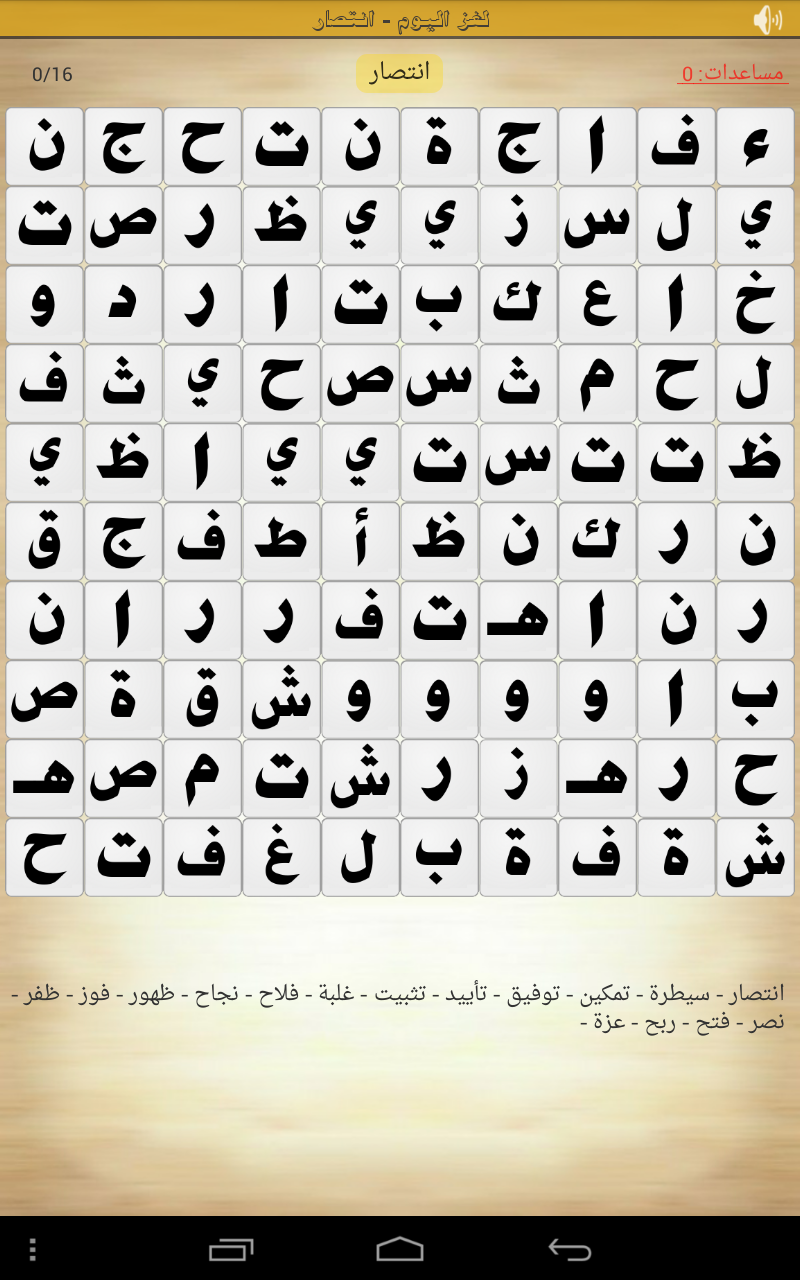 لغز اليوم - انتصار
مساعدات: 0 انتصار 0/16
ء ف ا ج ة ن ت ح ج ن
ي ل س ز ي ي ظ ر ص ت
خ ا ع ك ب ت ا ر د و
ل ح م ث س ص ح ي ث ف
ظ ت ت س ت ي ي ا ظ ي
ن ر ك ن ظ أ ط ف ج ق
ر ن ا هـ ت ف ر ر ا ن
ب ا و و و و ش ق ة ص
ح ر هـ ز ر ش ت م ص هـ
ش ة ف ة ب ل غ ف ت ح
انتصار - سيطرة - تمكين - توفيق - تأييد - تثبيت - غلبة - فلاح - نجاح - ظهور - فوز - ظفر -
نصر - فتح - ربح - عزة -